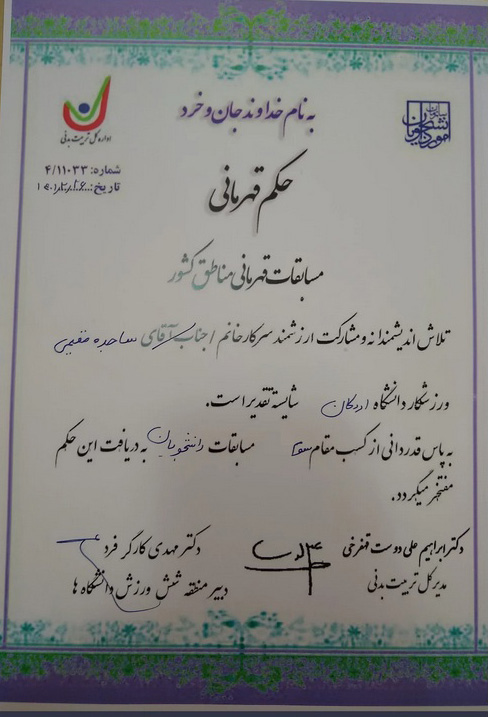 به نام خداوند جان و خرد
سازمان امور دانشجویان
اداره کل تربیت بدنی
شماره: ۴/۱۱۰۳۳
تاریخ:
حکم قهرمانی
مسابقات قهرمانی مناطق کشور
تلاش اندیشمندانه و مشارکت ارزشمند سرکار خانم / جناب آقای ساجده مقیمی
ورزشکار دانشگاه اردکان شایسته تقدیر است.
به پاس قدردانی از کسب مقام سوم مسابقات دانشجویان به دریافت این حکم
مفتخر میگردد.
دکتر ابراهیم علی دوست قهفرخی
مدیر کل تربیت بدنی
دکتر مهدی کارگر فرد
دبیر منطقه شش ورزش دانشگاه ها